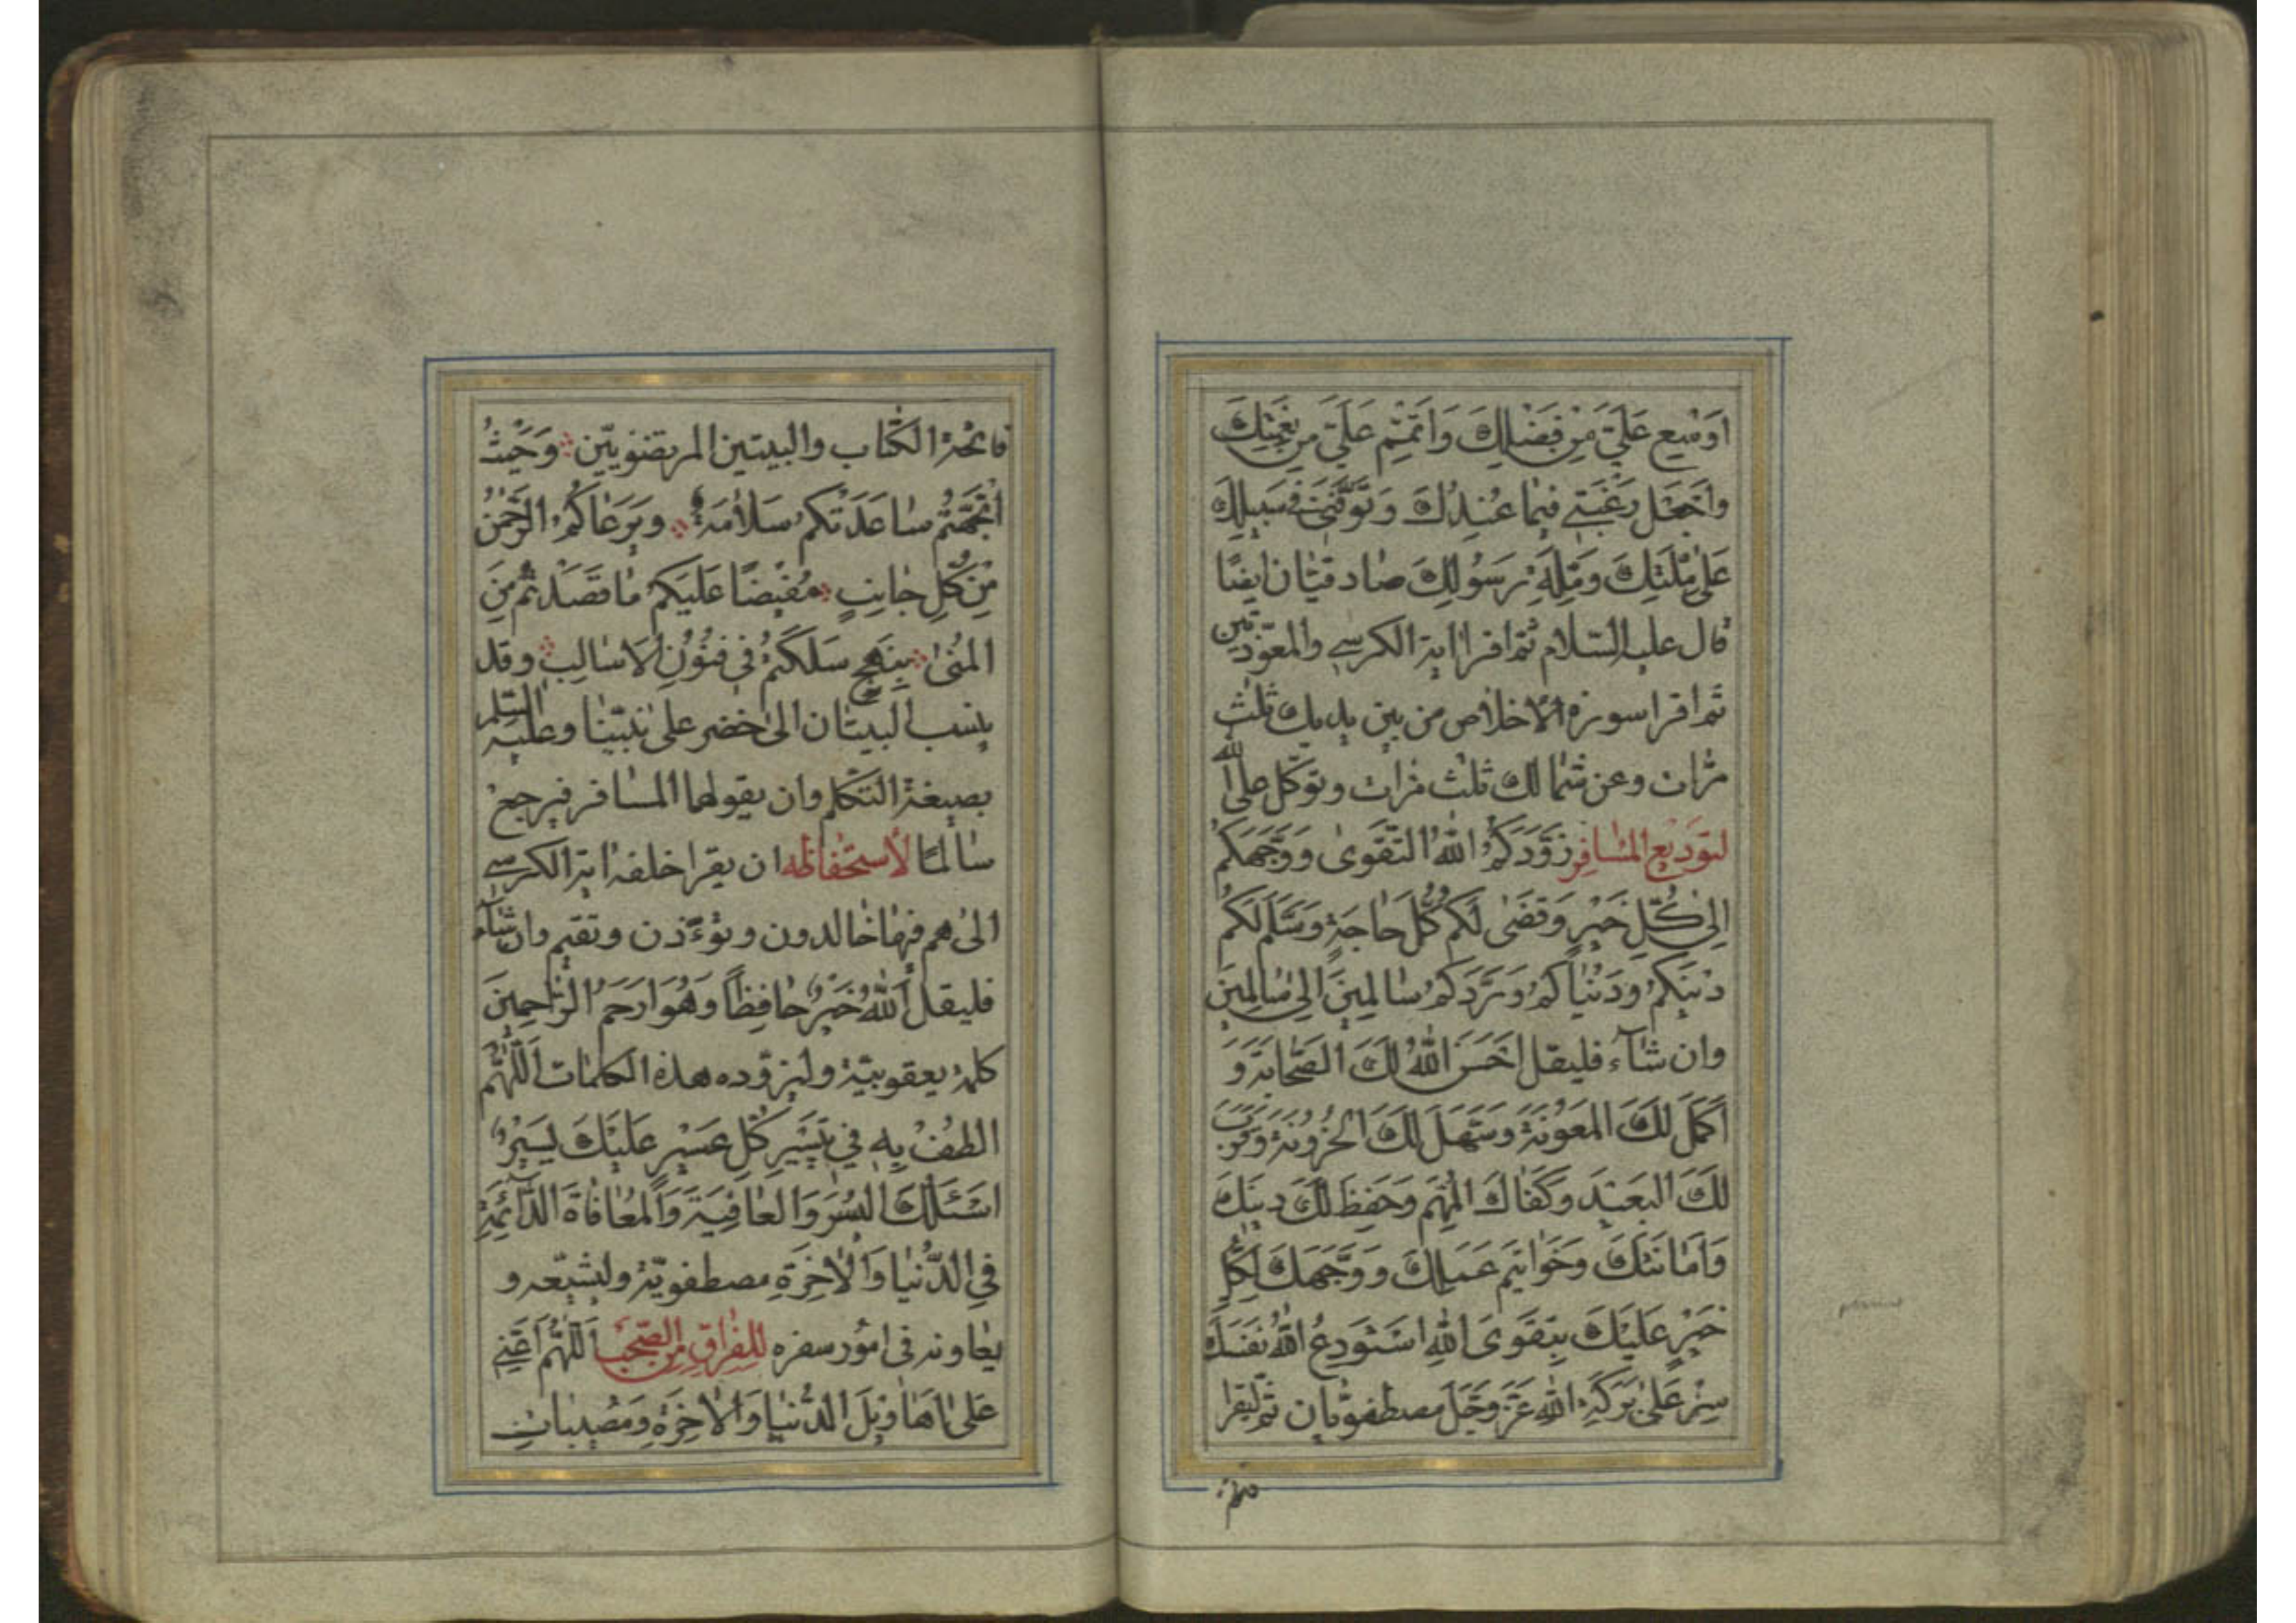 اَوْسِع عَلَيَّ مِنْ فَضْلِكَ وَاَتْمِمْ عَلَيَّ مِنْ نِعْمَتِكَ
وَاجْعَل رَغْبَتي فيمٰا عِنْدِكَ وَتَوَفَّنى فى سَبيلِكَ
عَلىٰ مِلَّتِكَ وَمِلَّةِ رَسُولِكَ صٰادقيّٰان ايضًا
قال عليه السّلام ثم اقرأ اية الكرسي والمعوّذتين
ثم اقرا سورة الاخلاص من بين يديك ثلٰث
مرّات وعن شمٰالك ثلٰث مرّات وتوكّل على الله
لتوَديعِ المُسٰافِرِ زَوَّدَكُمُ اللّٰهُ التَّقوىٰ وَوَجَّهَكُمْ
اِلىٰ كُلِّ خَيْرٍ وَقَضىٰ لَكُمْ كُلَّ حٰاجَةٍ وَسَلَّمَ لَكُمْ
دٖينَكُمْ وَدُنْيٰاكُمْ وَرَدَّكُمْ سٰالِمينَ اِلىٰ سٰالِمينَ
وان شٰآء فليقل اَحْسَنَ اللّٰهُ لَكَ الصَّحٰابَةَ وَ
اَكْمَلَ لَكَ المَعُونَةَ وَسَهَّلَ لَكَ الحُزُونَةَ وَقَرَّبَ
لَكَ البَعيدَ وَكَفٰاكَ المُهِمَّ وَحَفِظَ لَكَ دينَكَ
وَاَمٰانَتَكَ وَخَوٰاتيمَ عَمَلِكَ وَوَجَّهَكَ لِكُلِّ
خَيْرٍ عَلَيْكَ بِتَقْوَى اللّٰهِ اَسْتَوْدِعُ اللّٰهَ نَفْسَكَ
سِرْ عَلىٰ بَرَكَةِ اللّٰهِ عَزَّ وَجَلَّ مصطفويّان ثم ليقرا
فاتحة الكتٰاب والبيتين المرتضويّين وَحَيْثُ
اتَّجَهْتُمْ سٰاعَدَتْكم سَلاٰمَةٌ وَيَرعٰاكُمُ الرَّحْمٰنُ
مِنْ كُلِّ جٰانِبٍ مُفيضًا عَلَيكم مٰا قَصَدْتُمْ مِنَ
المُنىٰ بِنَهْجٍ سَلَكْتُمْ فى فُنُونِ الاَسٰالِبِ وقد
ينسب البيتٰان الى خضر على نبيّنٰا وعليه السّلم
بصيغة التكلّم وان يقولهما المسٰافر فيرجع
سٰالمًا لأستحفٰاظه ان يقرا خلفه اية الكرسي
الى هم فيهٰا خٰالدون ويؤذن ويقيم وان شٰآء
فليقل اَللّٰهُ خَيْرٌ حٰافِظاً وَهُوَ اَرْحَمُ الرّٰاحِمينَ
كلمة يعقوبيّة وليزوّده هذه الكلمٰات اَللّٰهُمَّ
الطُفْ بِهِ فى تَيْسيرِ كُلِّ عَسيرٍ عَلَيْكَ يَسيرٌ
اَسْئَلُكَ اليُسْرَ وَالعٰافِيَةَ وَالمُعٰافٰاةَ الدّٰائِمَةَ
فِى الدُّنْيٰا وَالاٰخِرَةِ مصطفويّة وليشيّعه و
يعٰاونه فى امور سفره للفِرٰاقِ مِنَ الصَّحْبِ اَللّٰهُمَّ اَعِنّي
عَلىٰ اَهٰاويلَ الدُّنيٰا وَالاٰخِرَةِ وَمُصيبٰاتِ